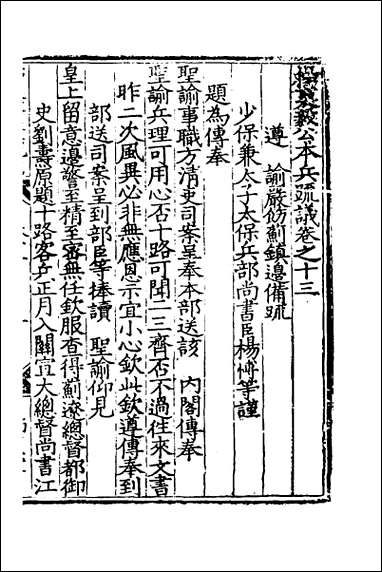 楊襄毅公本兵疏議卷之十三
遵 諭嚴飭薊鎮邊備疏
少保兼太子太保兵部尚書臣楊博等謹
題為傳奉
聖諭事職方清吏司案呈奉本部送該 內閣傳奉
聖諭兵理可用心否十路可聞一二三齊否不過徃來文書
昨二次風異必非無應恩示宜小心欽此欽遵傳奉到
部送司案呈到部臣等捧讀 聖諭仰見
皇上留意邊警至精至審無任欽服查得薊遼總督都御
史劉燾原題十路客兵正月入關宣大總督尚書江